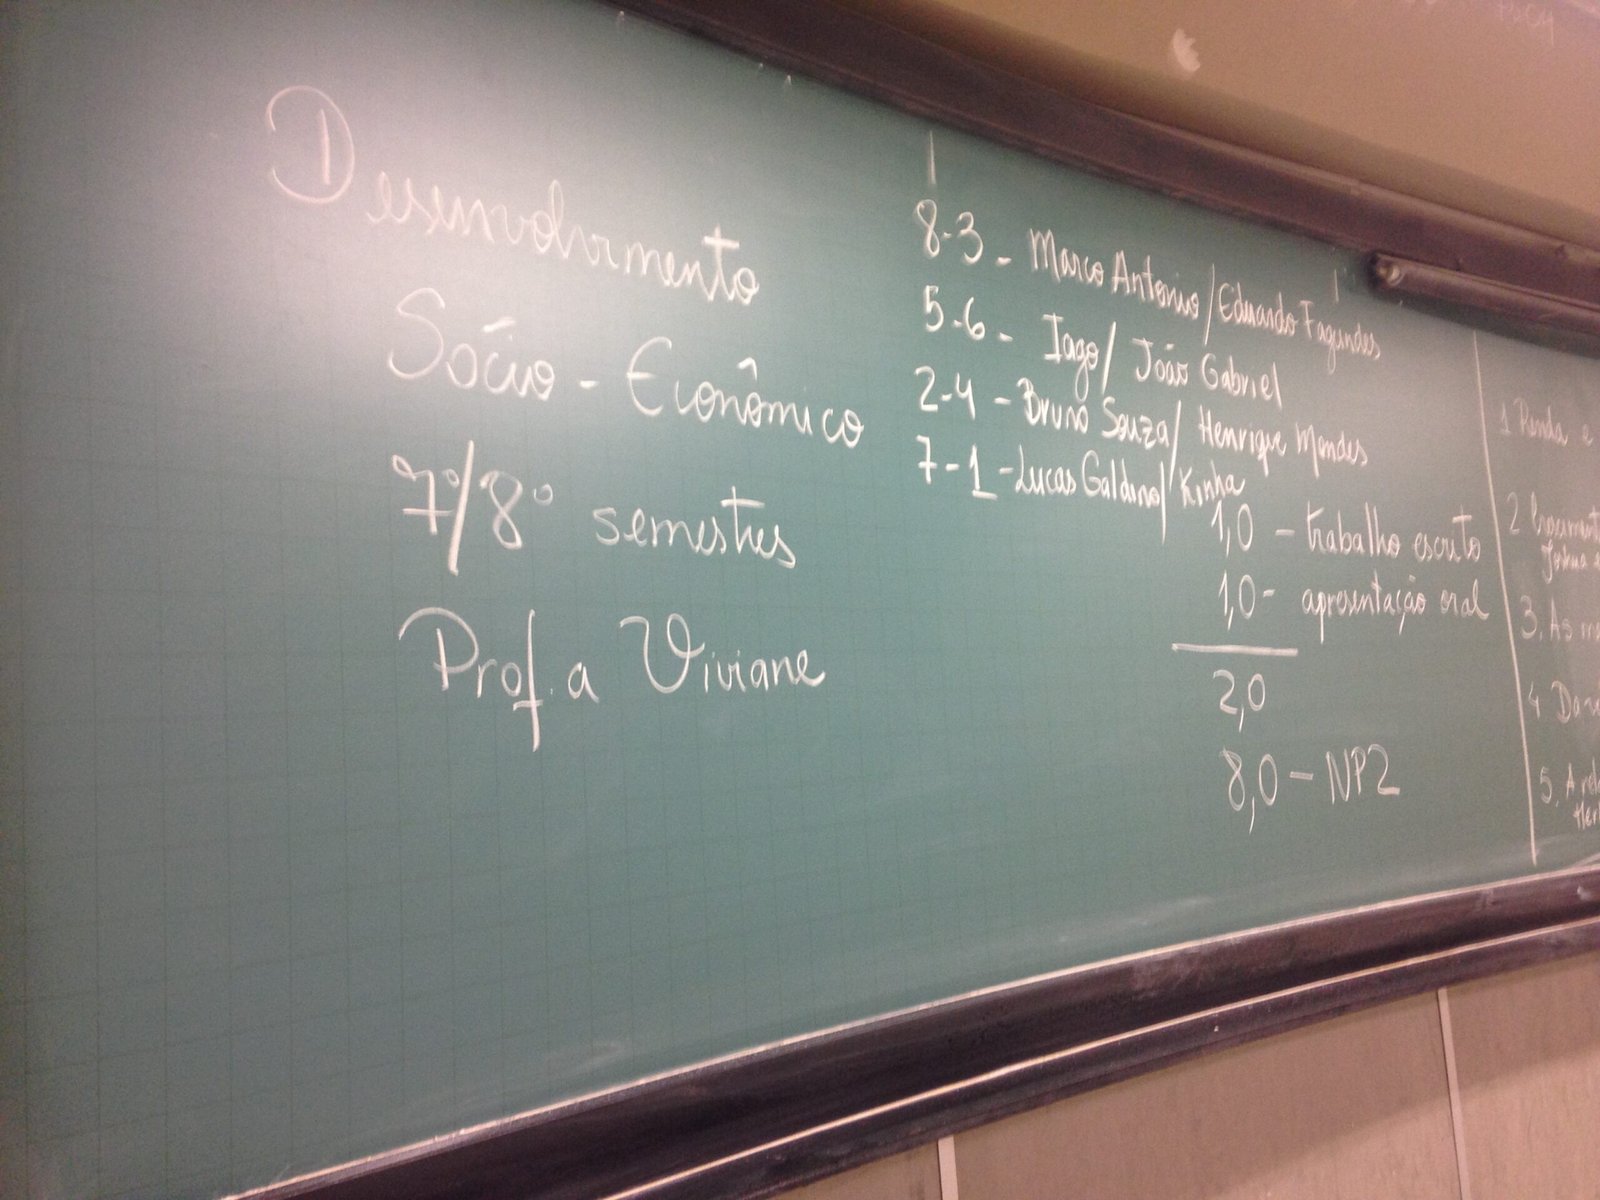 Desenvolvimento
Sócio - Econômico
7º/8º semestres
Prof.a Viviane
8-3 - Marco Antonio / Eduardo Fagundes
5-6 - Iago / João Gabriel
2-4 - Bruno Souza / Henrique Mendes
7-1 - Lucas Galdino / Kinha
1,0 - trabalho escrito
1,0 - apresentação oral
2,0
8,0 - NP2
1 Renda e
2
3. As
4
5. A